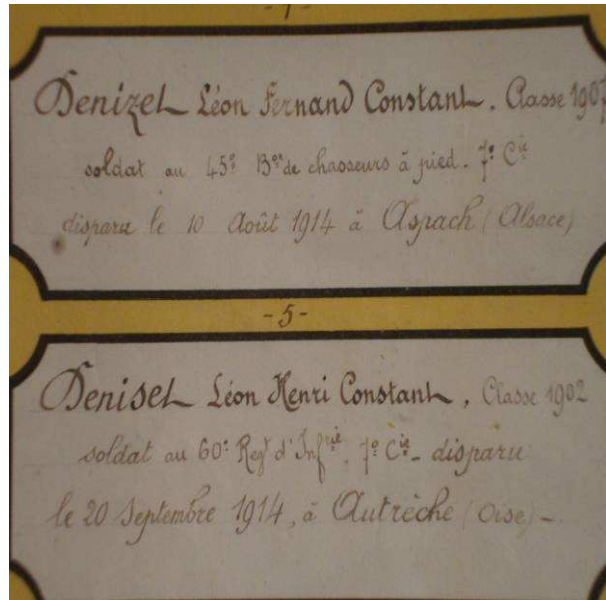 Denizet Léon Fernand Constant. Classe 1907
soldat au 45e Bon de chasseurs à pied. 7e Cie
disparu le 10 Août 1914 à Aspach (Alsace)
- 5 -
Deniset Léon Henri Constant, Classe 1902
soldat au 60e Regt d'Infrie. 7e Cie - disparu
le 20 Septembre 1914, à Autrèche (Oise) -